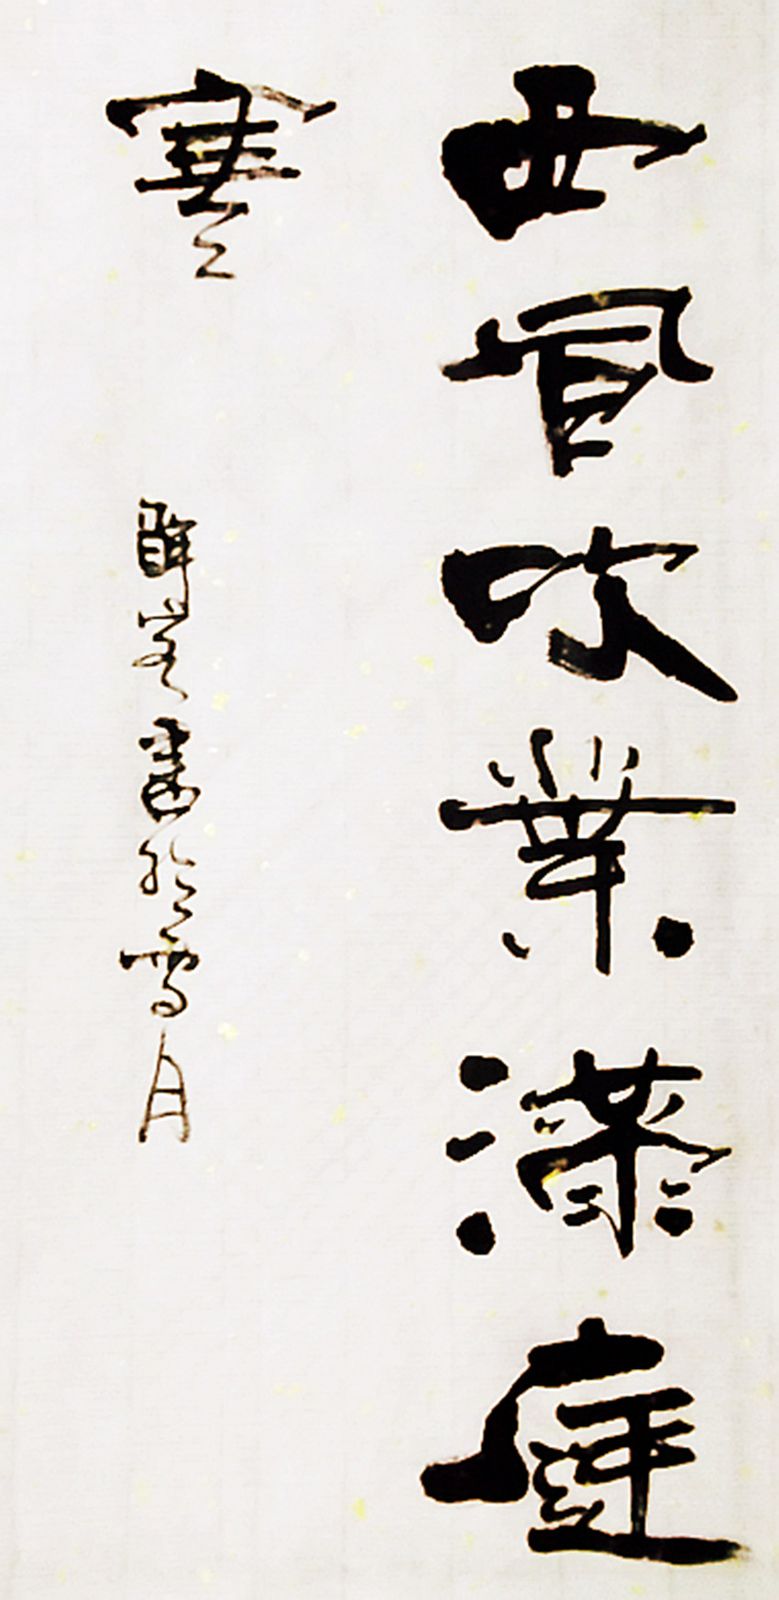 西風吹葉滿庭
寒 書於雪月